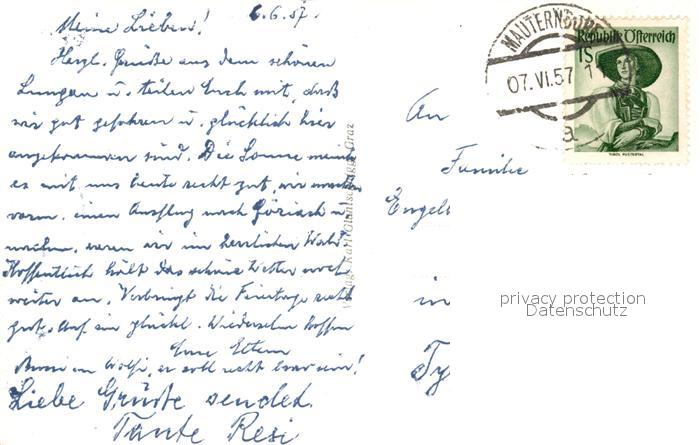 6.6.57.
Meine Lieben!
Herzl. Grüße aus dem schönen
Lungau u. teilen Euch mit, daß
wir gut gefahren u. glücklich hier
angekommen sind. Die Sonne meint
es mit uns heute recht gut, wir
vorm. einen Ausflug nach u.
nachm. waren wir im herrlichen Wald
Hoffentlich hält das schöne Wetter noch
weiter an. Verbringt die Feiertage recht
gut. Auf ein glückl. Wiedersehn hoffen
Eure Eltern
Wolfi, er soll recht brav sein!
Liebe Grüße sendet
Tante Resi
Graz
MAUTERNDORF
07.VI.57
a
Republik Österreich
1S
TIROL PUSTERTAL
An
Familie
Engel
in
Ty
privacy protection
Datenschutz